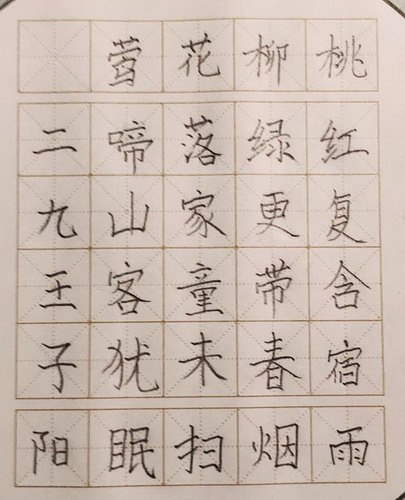 桃红复含宿雨
柳绿更带春烟
花落家童未扫
莺啼山客犹眠
二九王子阳